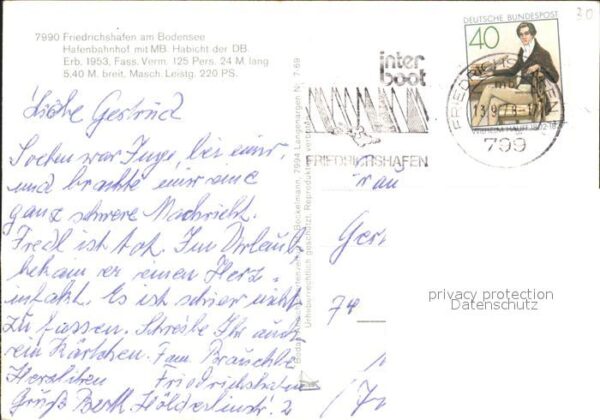 7990 Friedrichshafen am Bodensee
Hafenbahnhof mit MB. Habicht der DB.
Erb. 1953, Fass. Verm. 125 Pers. 24 M. lang
5,40 M. breit, Masch. Leistg. 220 PS.
Liebe Gertrud
Soeben war Inge, bei mir,
und brachte mir eine
ganz schwere Nachricht.
Fredl ist tot. Im Urlaub
bekam er einen Herz-
infakt. Es ist schier nicht
zu fassen. Schreibe Ihr auch
ein Kärtchen. Fam. Brauchle
Herzlichen Friedrichshafen
Gruß Berta Hölderlinstr. 2
7994 Langenargen Nr. 7-69
Urheberrechtlich geschützt. Reproduktion verboten
inter
boot
FRIEDRICHSHAFEN
DEUTSCHE BUNDESPOST
40
WILHELM HAUFF 1802-18
FRIEDRICHSHAFEN
799
30
rau
Ger
74
privacy protection
Datenschutz